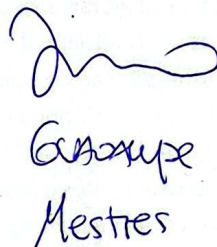 Guadalupe
Mestres